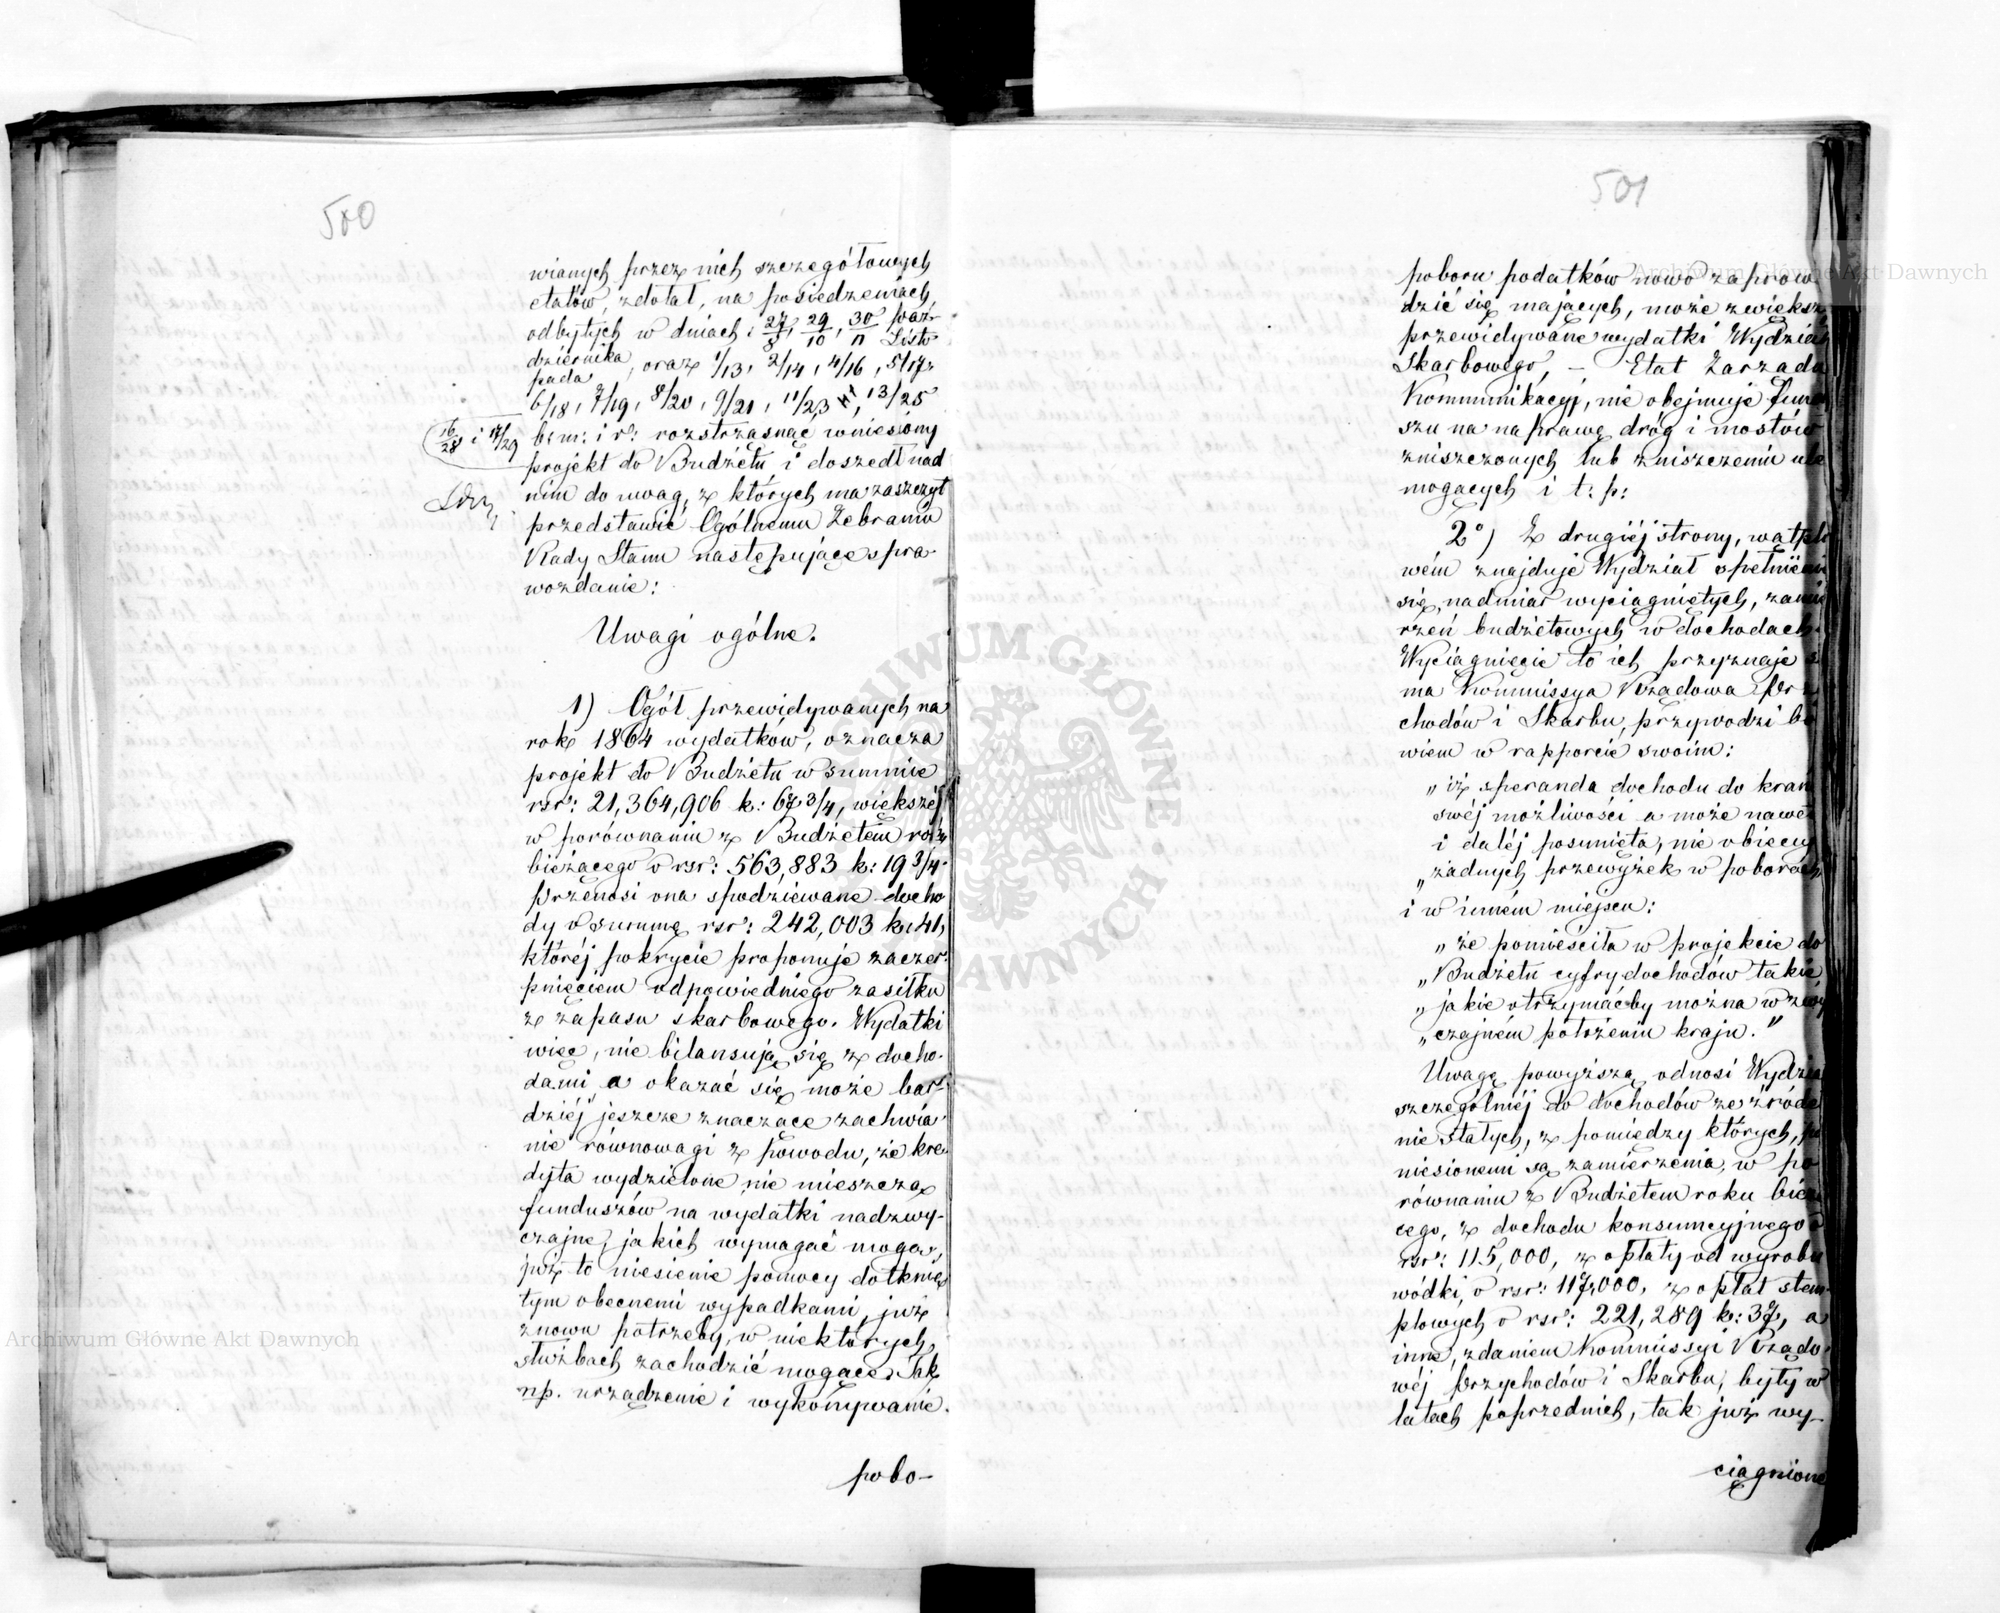 500
wianych przez nich szczegółowych
etatów, zdołał, na posiedzeniach,
odbytych w dniach: 27/8, 29/10, 30/11 Paź-
dziernika, oraz 1/13, 2/14, 4/16, 5/17, Listo
pada
6/18, 7/19, 8/20, 9/21, 11/23, 13/25
16/28 i 17/29
b: m: i r: roztrząsnąć wniesiony
projekt do Budżetu i doszedł nad
nim do uwag, z których ma zaszczyt
przedstawić Ogólnemu Zebraniu
Rady Stanu następujące spra-
wozdanie:
Uwagi ogólne.
1) Ogół przewidywanych na
rok 1864 wydatków, oznacza
projekt do Budżetu w summie
rsr: 21,364,906 k: 67 3/4, większéj
w porównaniu z Budżetem roku
bieżącego o rsr: 563,883 k: 19 3/4.
Przenosi ona spodziewane docho-
dy o summę rsr: 242,003 k: 41,
któréj pokrycie proponuje zaczer-
pnięciem odpowiedniego zasiłku
z zapasu skarbowego. Wydatki
więc, nie bilansują się z docho-
dami a okazać się może bar-
dziéj jeszcze znaczące zachwia-
nie równowagi z powodu, że kre-
dyta wydzielone nie mieszczą
funduszów na wydatki nadzwy-
czajne, jakich wymagać mogą,
już to niesienie pomocy dotknię
tym obecnemi wypadkami, już
znowu potrzeby, w niektórych
służbach zachodzić mogące. Jak
np. urządzenie i wykonywanie
pobo-
501
poboru podatków nowo zaprowa
dzić się mających, może zwiększ
przewidywane wydatki Wydział
Skarbowego, – Etat Zarządu
Kommunikacyj, nie obejmuje fundu
szu na naprawę dróg i mostów
zniszczonych lub zniszczeniu uledz
mogących i t: p:
2°) Z drugiéj strony, wątpli
wém znajduje Wydział spełnienie
się, nadmiar wyciągniętych, zamie
rzeń budżetowych w dochodach.
Wyciągnięcie to ich przyznaje sa
ma Kommissya Rządowa Przy
chodów i Skarbu, przywodzi bo
wiem w rapporcie swoim:
„iż speranda dochodu do krańc
swéj możliwości a może nawet
i daléj posunięta, nie obiecuj
„żadnych przewyżek w poborach
i w inném miejscu:
„że pomieściła w projekcie do
„Budżetu cyfry dochodów takie
„jakie otrzymaćby można w zwy
„czajném położeniu kraju."
Uwagę powyższą odnosi Wydział
szczególniéj do dochodów ze źródeł
nie stałych, z pomiędzy których, po
niesionemi są zamierzenia, w po
równaniu z Budżetem roku bieżą
cego, z dochodu konsumcyjnego o
rsr: 115,000, z opłaty od wyrobu
wódki, o rsr: 117,000, z opłat stem-
plowych o rsr: 221,289 k: 37, a
inne, zdaniem Kommissyi Rządo-
wéj Przychodów i Skarbu, były w
latach poprzednich, tak już wy-
ciągnione
Archiwum Główne Akt Dawnych
Archiwum Główne Akt Dawnych
ARCHIWUM GŁÓWNE AKT DAWNYCH